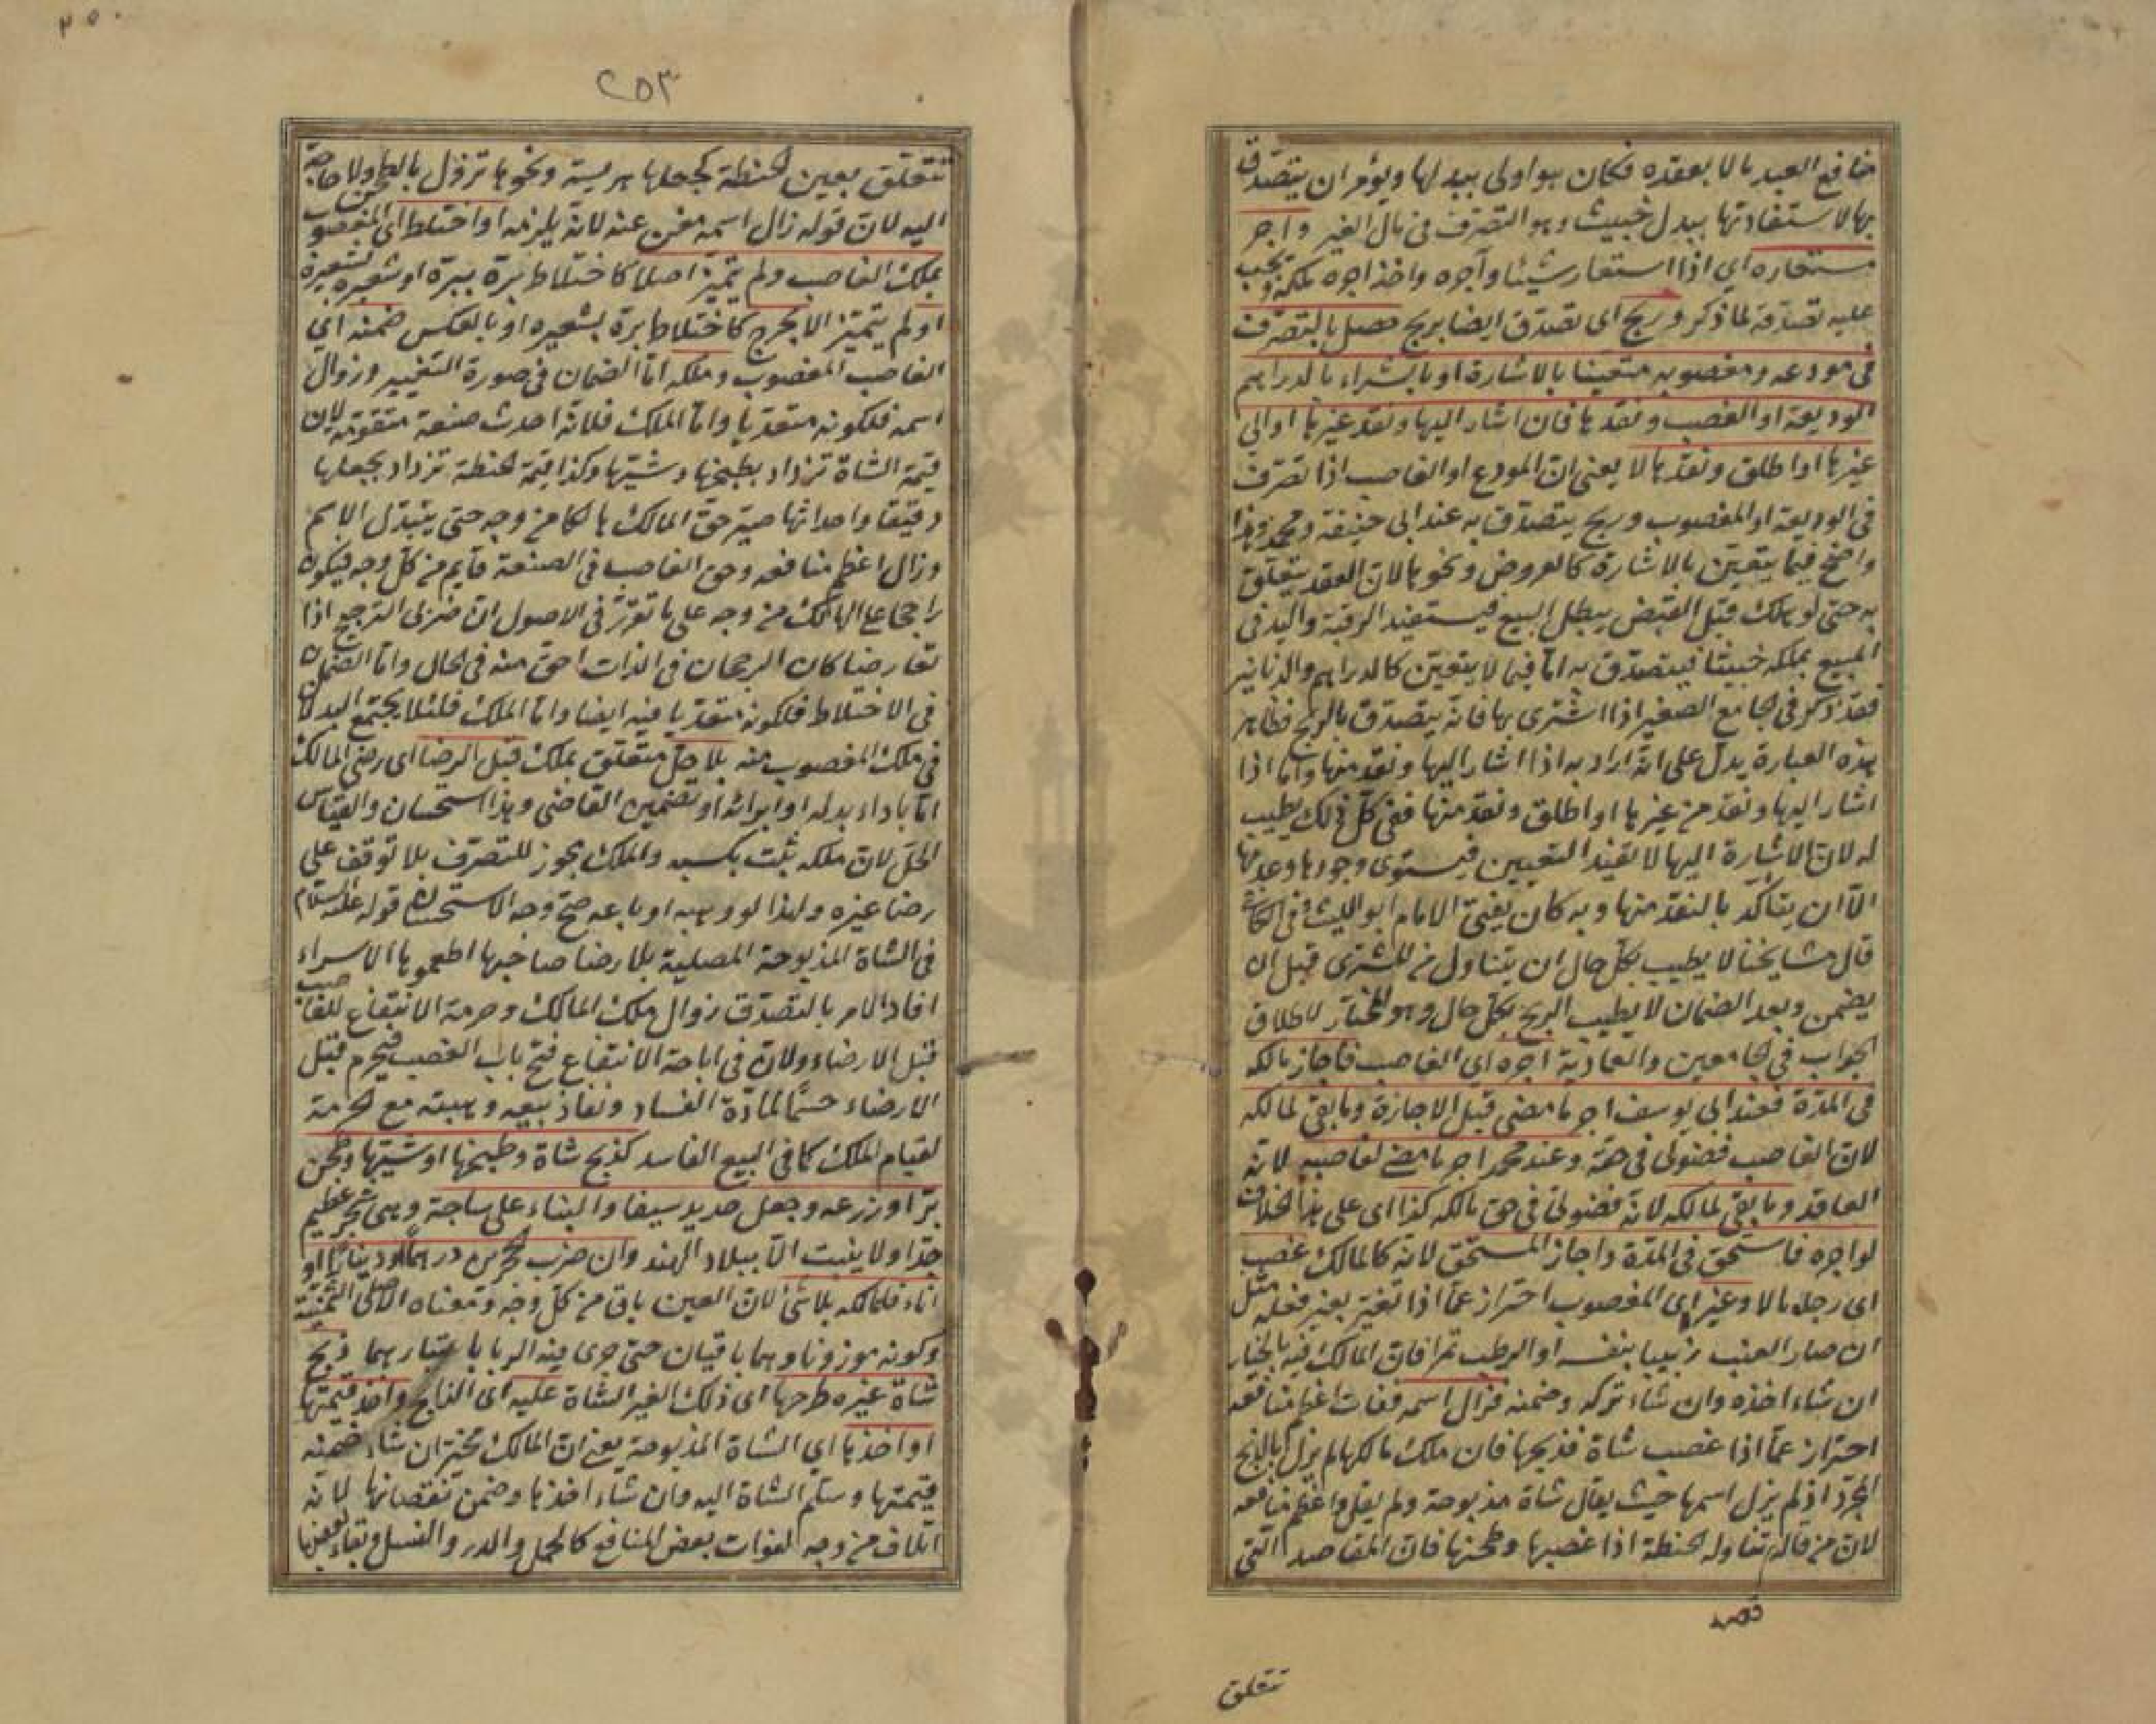 منافع العبد مالا بعقده فكان هو اولى ببدلها ويؤمر ان يتصدق
بها لاستفادتها ببدل خبيث وهو التصرف في مال الغير واجر
مستعاره اي اذا استعار شيئا وآجره واخذ اجره ملكه ويجب
عليه تصدقه لما ذكر وربح اى تصدق ايضا بربح حصل بالتصرف
في مودعه ومغصوبه متعينا بالاشارة او بالشراء بالدراهم
الوديعة او الغصب ونقدها فان اشار اليها ونقد غيرها او الى
غيرها او اطلق ونقدها لا يعنى ان المودع او الغاصب اذا تصرف
في الوديعة او المغصوب وربح يتصدق به عند ابى حنيفة ومحمد وهذا
واضح فيما يتعين بالاشارة كالعروض ونحوها لان العقد يتعلق
به حتى لو هلك قبل القبض يبطل البيع فيستفيد الرقبة واليد في
المبيع بملكه خبيثا فيتصدق به اما فيما لا يتعين كالدراهم والدنانير
فقد ذكر في الجامع الصغير اذا اشترى بها فانه يتصدق بالربح فظاهر
هذه العبارة يدل على انه اراد به اذا اشار اليها ونقد منها واما اذا
اشار اليها ونقد من غيرها او اطلق ونقد منها ففي كل ذلك يطيب
له لان الاشارة اليها لا تفيد التعيين فيستوى وجودها وعدمها
الا ان يتأكد بالنقد منها وبه كان يفتى الامام ابو الليث وفى الكافى
قال مشايخنا لا يطيب بكل حال ان يتناول من المشترى قبل ان
يضمن وبعد الضمان لا يطيب الربح بكل حال وهو المختار لاطلاق
الجواب في الجامعين والعمادية اجره اى الغاصب فاجاز مالكه
في المدة فعند ابى يوسف اجر ما مضى قبل الاجازة وما بقى لمالكه
لان الغاصب فضولى في حقه وعند محمد اجر ما مضى لغاصبه لانه
العاقد وما بقى لمالكه لانه فضولى في حق مالكه كذا اى على هذا الخلاف
لو اجره فاستحق في المدة واجاز المستحق لانه كالمالك غصب
اى رجل مالا وغير اى المغصوب احتراز عما اذا تغير بغير فعله مثل
ان صار العنب زبيبا بنفسه او الرطب تمرا فان المالك فيه بالخيار
ان شاء اخذه وان شاء تركه وضمنه فزال اسمه ففات اعظم منافعه
احتراز عما اذا غصب شاة فذبحها فان ملك مالكها لم يزل بالذبح
المجرد اذ لم يزل اسمها حيث يقال شاة مذبوحة ولم يقل واعظم منافعه
لان من قاله تناوله الحنطة اذا غصبها وطحنها فان المقاصد التى
قصد
تتعلق
٢٥٣
تتعلق بعين الحنطة كجعلها هريسة ونحوها تزول بالطحن ولا حاجة
اليه لان قوله زال اسمه مغن عنه لانه يلزمه او اختلط اى المغصوب
بملك الغاصب ولم يتميز اصلا كاختلاط برة ببرة او شعيره بشعيرة
او لم يتميز الا بحرج كاختلاط برة بشعيره او بالعكس ضمنه اى
الغاصب المغصوب وملكه اما الضمان في صورة التغيير وزوال
اسمه فلكونه متعديا واما الملك فلانه احدث صنعة متقومة لان
قيمة الشاة تزداد بطبخها وشيها وكذا قيمة الحنطة تزداد بجعلها
دقيقا واحداثها صير حق المالك هالكا من وجه حتى يتبدل الاسم
وزال اعظم منافعه وحق الغاصب في الصنعة قايم من كل وجه فيكون
راجحا على الهالك من وجه على ما تقرر في الاصول ان ضربى الترجيح اذا
تعارضا كان الرجحان في الذات احق منه في الحال واما الضمان
في الاختلاط فلكونه متعديا فيه ايضا واما الملك فلئلا يجتمع البدلان
في ملك المغصوب منه بلا حل متعلق بملك قبل الرضا اى رضى المالك
اما باداء بدله او ابرائه او تضمين القاضى وهذا استحسان والقياس
الحل لان ملكه ثبت بكسبه والملك يجوز للتصرف بلا توقف على
رضا غيره ولهذا لو وهبه او باعه صح وجه الاستحسان قوله عليه السلام
في الشاة المذبوحة المصلية بلا رضا صاحبها اطعموها الاسراء
افاد الامر بالتصدق زوال ملك المالك وحرمة الانتفاع للغاصب
قبل الارضاء ولان في اباحة الانتفاع فتح باب الغصب فيحرم قبل
الارضاء حسما لمادة الفساد ونفاذ بيعه وهبته مع الحرمة
لقيام الملك كما في البيع الفاسد كذبح شاة وطبخها او شيها وطحن
بر او زرعه وجعل حديد سيفا والبناء على ساجة وهى شجر عظيم
جدا ولا ينبت الا ببلاد الهند وان ضرب حجرين درهما او دينارا او
اناء فلمالكه بلا شئ لان العين باق من كل وجه ومعناه الاصلى الثمنية
وكونه موزونا وهما باقيان حتى جرى فيه الربا باعتبارهما ذبح
شاة غيره طرحها اى ذلك الغير الشاة عليه اى الذابح واخذ قيمتها
او اخذها اى الشاة المذبوحة يعنى ان المالك مخير ان شاء ضمنه
قيمتها وسلم الشاة اليه وان شاء اخذها وضمن نقصانها لانه
اتلاف من وجه لفوات بعض المنافع كالحمل والدر والنسل وبقاء بعضها